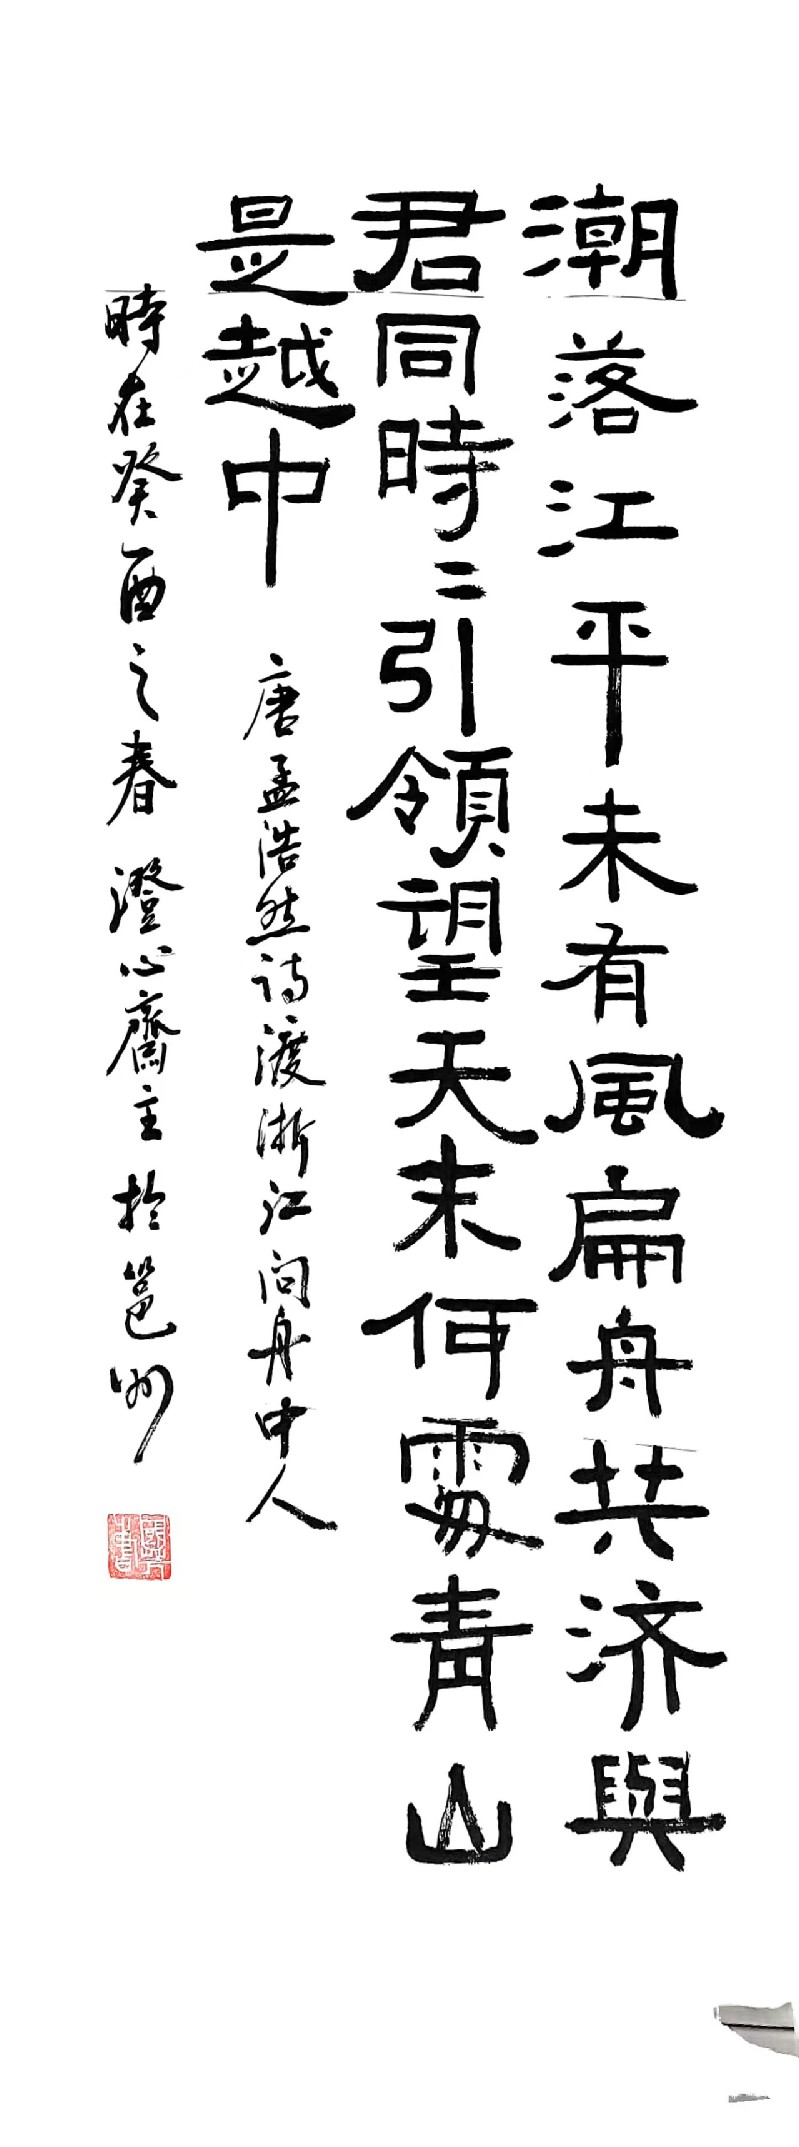 潮落江平未有風扁舟共济與
君同時〻引領望天末何處青山
是越中 唐孟浩然詩渡浙江问舟中人
時在癸酉之春 澄心齋主於邕州